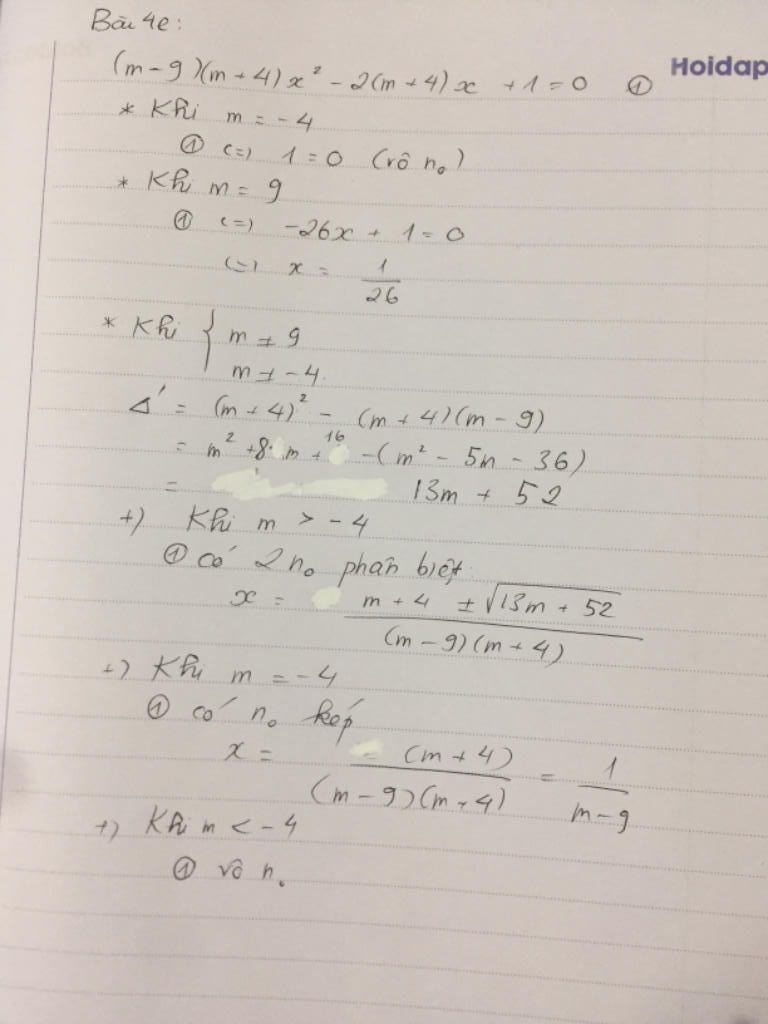 Bài 4e:
Hoidap
(m-9)(m+4)x² - 2(m+4)x + 1 = 0 ①
* Khi m = -4
① (=) 1 = 0 (vô n₀)
* Khi m = 9
① (=) -26x + 1 = 0
(=) x = 1/26
* Khi { m ≠ 9
m ≠ -4.
Δ' = (m+4)² - (m+4)(m-9)
= m² + 8m + 16 - (m² - 5m - 36)
= 13m + 52
+) Khi m > -4
① có 2 n₀ phân biệt:
x = (m+4 ± √(13m+52))/((m-9)(m+4))
+) Khi m = -4
① có n₀ kép
x = (m+4)/((m-9)(m+4)) = 1/(m-9)
+) Khi m < -4
① vô n₀